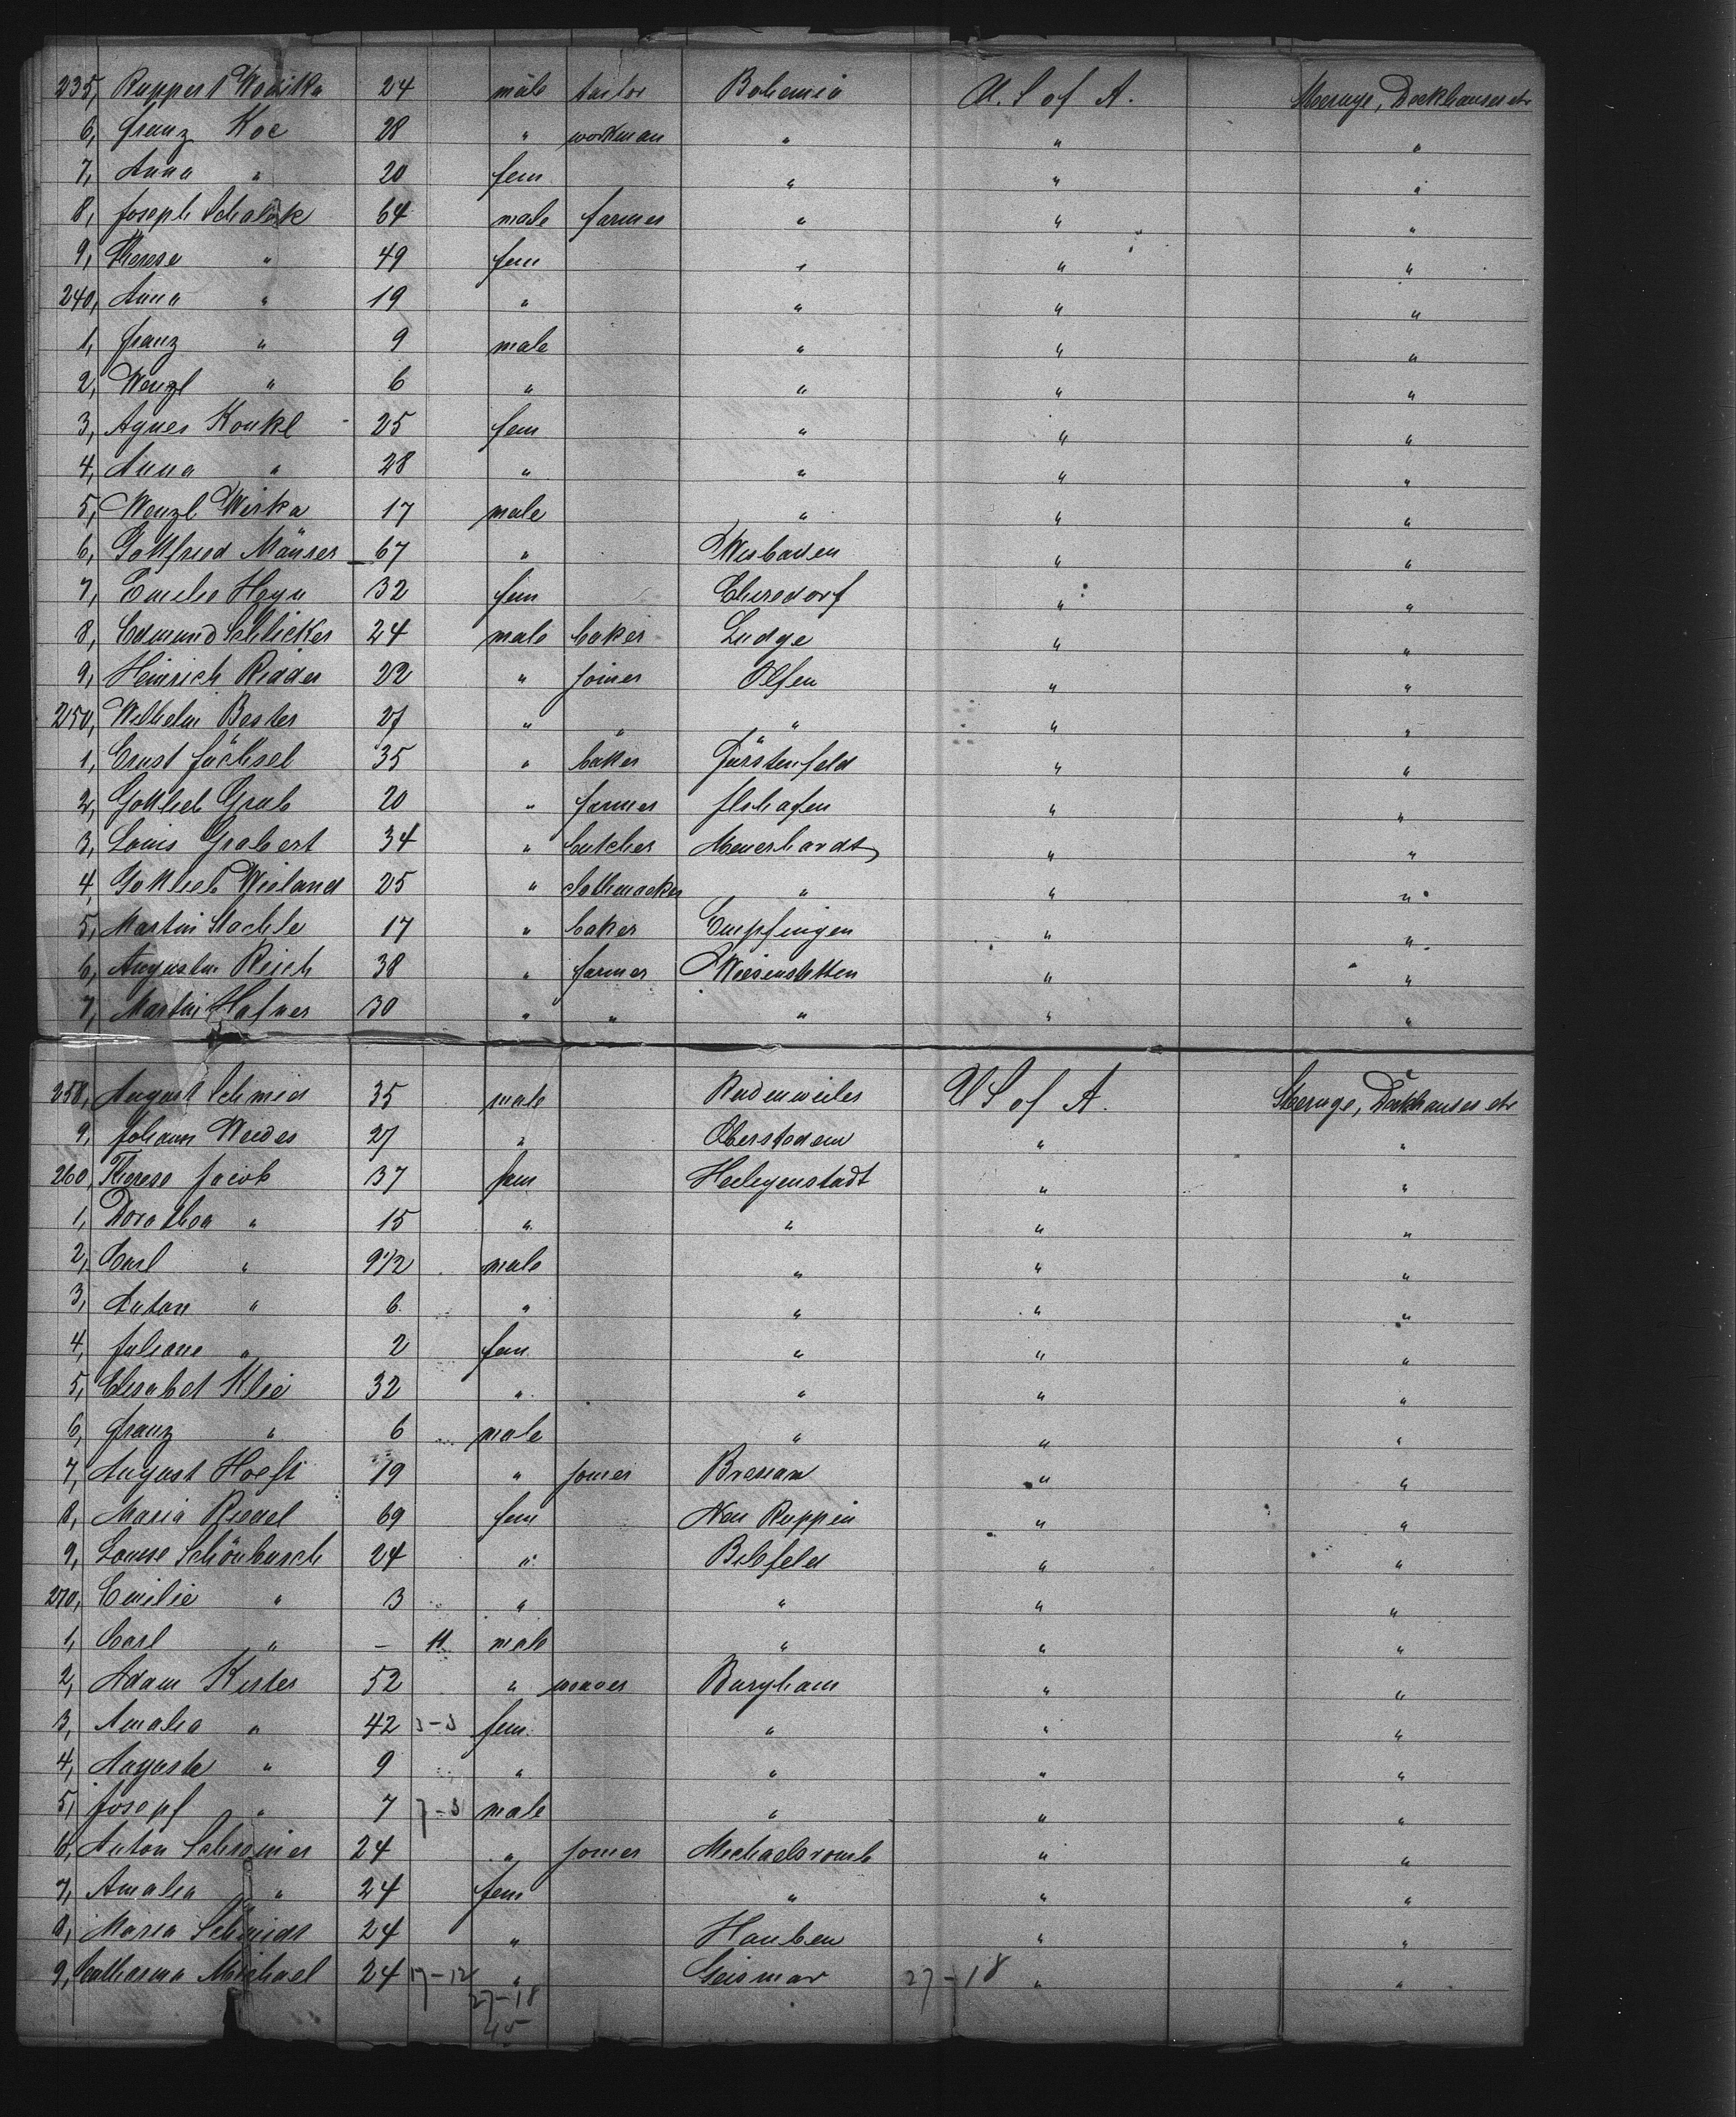 235, Ruppert Woditka 24 male tailor Bohemia U. S of A. Steerage, Deckhouses etc
6, Franz Koc 28 " workman " " "
7, Anna " 20 fem " " "
8, Joseph Schaleck 64 male farmer " " "
9, Therese " 49 fem " " "
240, Anna " 19 " " " "
1, Franz " 9 male " " "
2, Wenzl " 6 " " " "
3, Agnes Koukl 25 fem " " "
4, Anna " 28 " " " "
5, Wenzl Wirka 17 male " " "
6, Gottfried Mäurer 67 " Wisbaden " "
7, Emilie Heyn 32 fem Ebersdorf " "
8, Edmund Schlicker 24 male baker Ludge " "
9, Heinrich Ridder 22 " joiner Olfen " "
250, Wilhelm Bester 27 " " " " "
1, Ernst Füchsel 35 " baker Fürstenfeld " "
2, Gottlieb Grab 20 " farmer Ilshofen " "
3, Louis Grabert 34 " butcher Menerhardt " "
4, Gottlieb Wieland 25 " clothmacker " " "
5, Martin Stachle 17 " baker Empfingen " "
6, Augustin Reich 38 " farmer Wiesenstetten " "
7, Martin Hafner 30 " " " " "
258, August Schmid 35 male Rudenweiler U S of A. Steerage, Deckhouses etc
9, Johann Weides 27 " Oberstedem " "
260, Therese Jacob 37 fem Heiligenstadt " "
1, Dorothea " 15 " " " "
2, Carl " 9 1/2 male " " "
3, Anton " 6 " " " "
4, Juliane " 2 fem " " "
5, Elisabet Klie 32 " " " "
6, Franz " 6 male " " "
7, August Hoeft 19 " joiner Breslau " "
8, Maria Riedel 69 fem Neu Ruppin " "
9, Louise Schönbusch 24 " Bilefeld " "
270, Emilie " 3 " " " "
1, Carl " – 11 male " " "
2, Adam Kister 52 " weaver Burgham " "
3, Amalia " 42 3-3 fem. " " "
4, Auguste " 9 " " " "
5, Josepf " 7 7-3 male " " "
6, Anton Schreiner 24 " joiner Michaelsromb " "
7, Amalia " 24 fem " " "
8, Maria Schmidt 24 " Hauben " "
9, Catharina Michael 24 17-12 " Geismar 27-18 " "
27-18
45